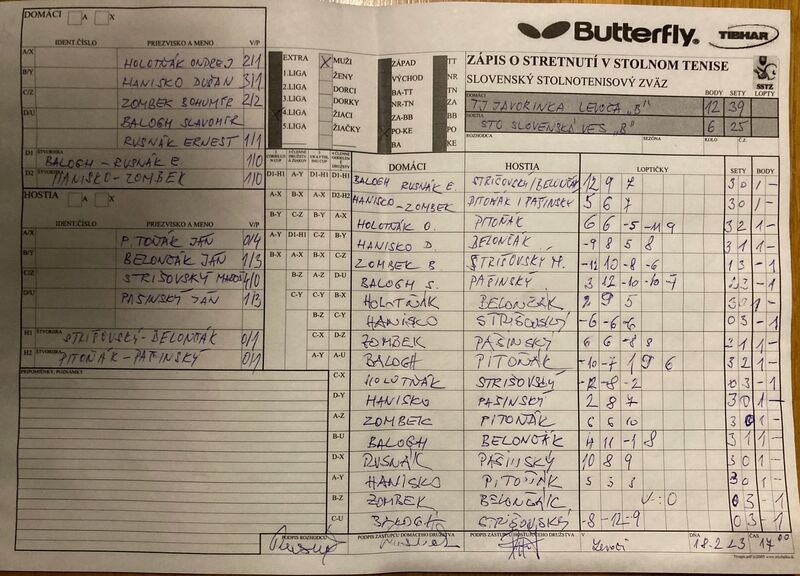 DOMÁCI A X
IDENT.ČÍSLO PRIEZVISKO A MENO V/P
A/X HOLOTŇÁK ONDREJ 2/1
B/Y HANISKO DUŠAN 3/1
C/Z ZOMBEK BOHUMÍR 2/2
D/U BALOGH SLAVOMÍR
RUSNÁK ERNEST 1/1
D1 ŠTVORHRA BALOGH - RUSNÁK E. 1/0
D2 ŠTVORHRA HANISKO - ZOMBEK 1/0
HOSTIA A X
IDENT.ČÍSLO PRIEZVISKO A MENO V/P
A/X PITOŇÁK JÁN 0/4
B/Y BELONČÁK JÁN 1/3
C/Z STRIŠOVSKÝ 4/0
D/U PAŠINSKÝ JÁN 1/3
H1 ŠTVORHRA STRIŠOVSKÝ - BELONČÁK 0/1
H2 ŠTVORHRA PITOŇÁK - PAŠINSKÝ 0/1
PRIPOMIENKY, POZNÁMKY
EXTRA X MUŽI
1.LIGA ŽENY
2.LIGA DORCI
3.LIGA DORKY
4.LIGA ŽIACI
5.LIGA ŽIAČKY
ZÁPAD TT
VÝCHOD NR
BA-TT TN
NR-TN ZA
ZA-BB BB
PO-KE PO
BA KE
Butterfly. TIBHAR
ZÁPIS O STRETNUTÍ V STOLNOM TENISE
SLOVENSKÝ STOLNOTENISOVÝ ZVÄZ
SSTZ
DOMÁCI BODY SETY LOPTY
TJ JAVORINKA LEVOČA „B" 12 39
HOSTIA
STO SLOVENSKÁ VES „B" 6 25
ROZHODCA SEZÓNA KOLO Č.Z.
DOMÁCI HOSTIA LOPTIČKY SETY BODY
D1-H1 A-Y D1-H1 D1-H1 BALOGH RUSNÁK E. STRIŠOVSKÝ/BELONČÁK 12 9 7 3 0 1 -
A-X B-X A-X D2-H2 HANISKO - ZOMBEK PITOŇÁK / PAŠINSKÝ 5 6 7 3 0 1 -
B-Y C-Z B-Y A-X HOLOTŇÁK O. PITOŇÁK 6 6 -5 -11 9 3 2 1 -
A-Y D1-H1 C-Z B-Y HANISKO D. BELONČÁK -9 8 5 8 3 1 1 -
B-X A-X B-X C-Z ZOMBEK B. STRIŠOVSKÝ M. -12 10 -8 -6 1 3 - 1
B-Z A-Z D-U BALOGH S. PAŠINSKÝ 3 12 -10 -10 -7 2 3 - 1
C-Y C-Y B-X HOLOTŇÁK BELONČÁK 2 9 5 3 0 1 -
B-Z C-Y HANISKO STRIŠOVSKÝ -6 -6 -6 0 3 - 1
C-X D-Z ZOMBEK PAŠINSKÝ 6 6 -8 8 3 1 1 -
A-Y A-U BALOGH PITOŇÁK -10 -7 1 9 6 3 2 1 -
C-X HOLOTŇÁK STRIŠOVSKÝ -12 -8 -2 0 3 - 1
D-Y HANISKO PAŠINSKÝ 2 8 7 3 0 1 -
A-Z ZOMBEK PITOŇÁK 6 6 10 3 0 1 -
B-U BALOGH BELONČÁK 4 11 -1 8 3 1 1 -
D-X RUSNÁK PAŠINSKÝ 10 8 9 3 0 1 -
A-Y HANISKO PITOŇÁK 5 3 3 3 0 1 -
B-Z ZOMBEK BELONČÁK 0 3 - 1
C-U BALOGH STRIŠOVSKÝ -8 -12 -9 0 3 - 1
PODPIS ROZHODCU PODPIS ZÁSTUPCU DOMÁCEHO DRUŽSTVA PODPIS ZÁSTUPCU HOSŤUJÚCEHO DRUŽSTVA V Levoči DŇA 18.2.23 ČAS 17:00